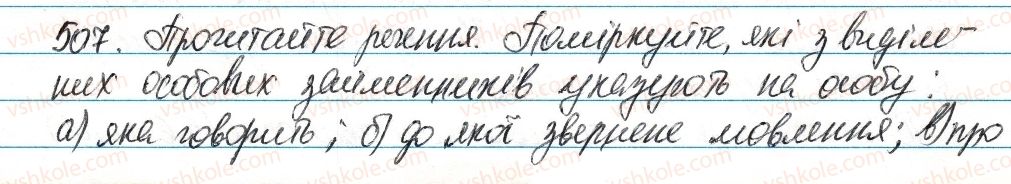 507. Прочитайте речення. Поміркуйте, які з виділе-
них особових займенників указують на особу:
а) яка говорить; б) до якої звернене мовлення; в) про